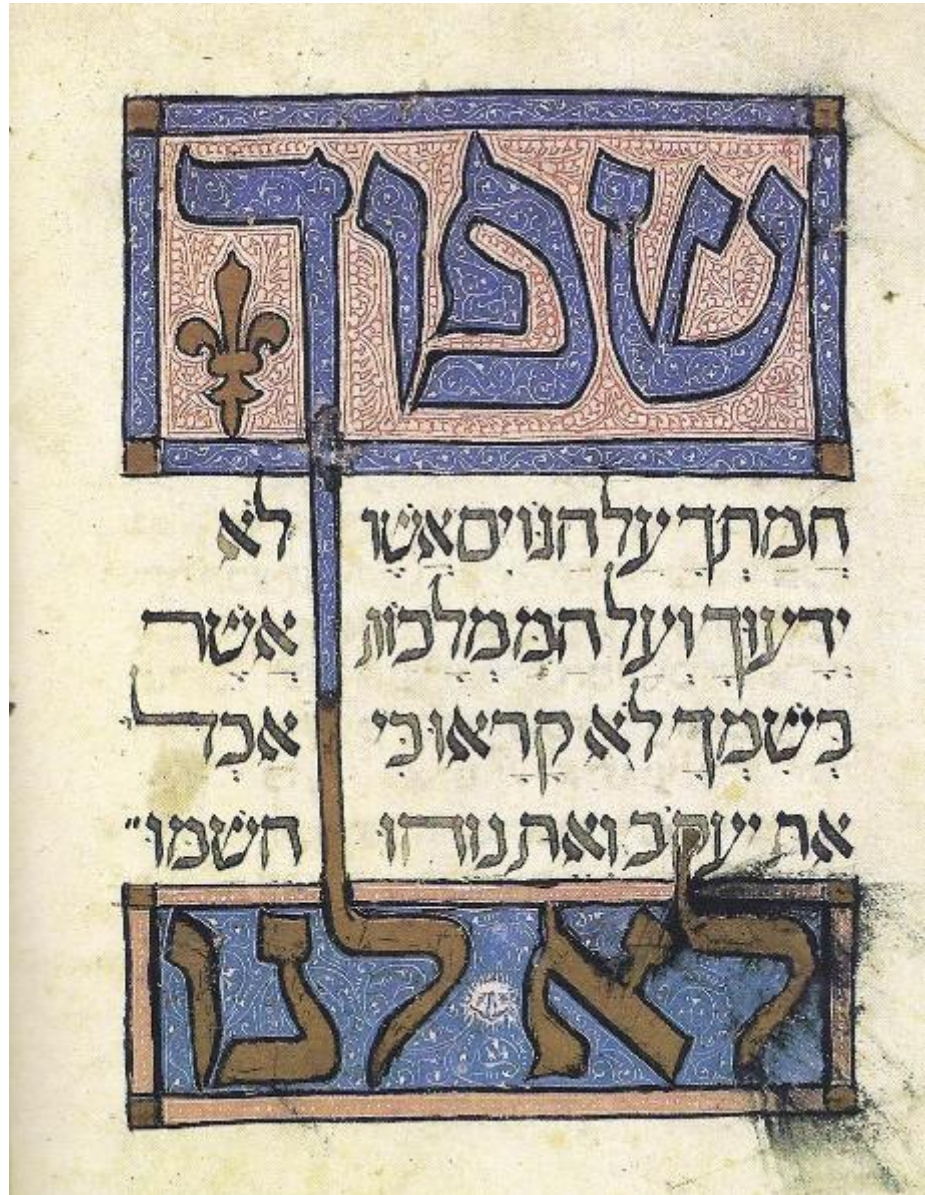 שפוך
חֲמָתְךָ עַל הַגּוֹיִם אֲשֶׁר לֹא
יְדָעוּךָ וְעַל הַמַּמְלָכוֹת אֲשֶׁר
בְּשִׁמְךָ לֹא קָרָאוּ כִּי אָכַל
את יעקב ואת נוהו השמו
לא לנו